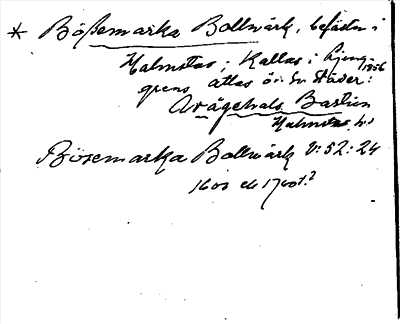 * Bößemarka Bollwärk, befästn i
Halmstad; kallas i Ljung-
1856
grens atlas öv. Sv. städer:
Avägehals Bastion
Halmstad, h.
Bösemarka Bollwärk V:52:24
1600 el. 1700 t.?